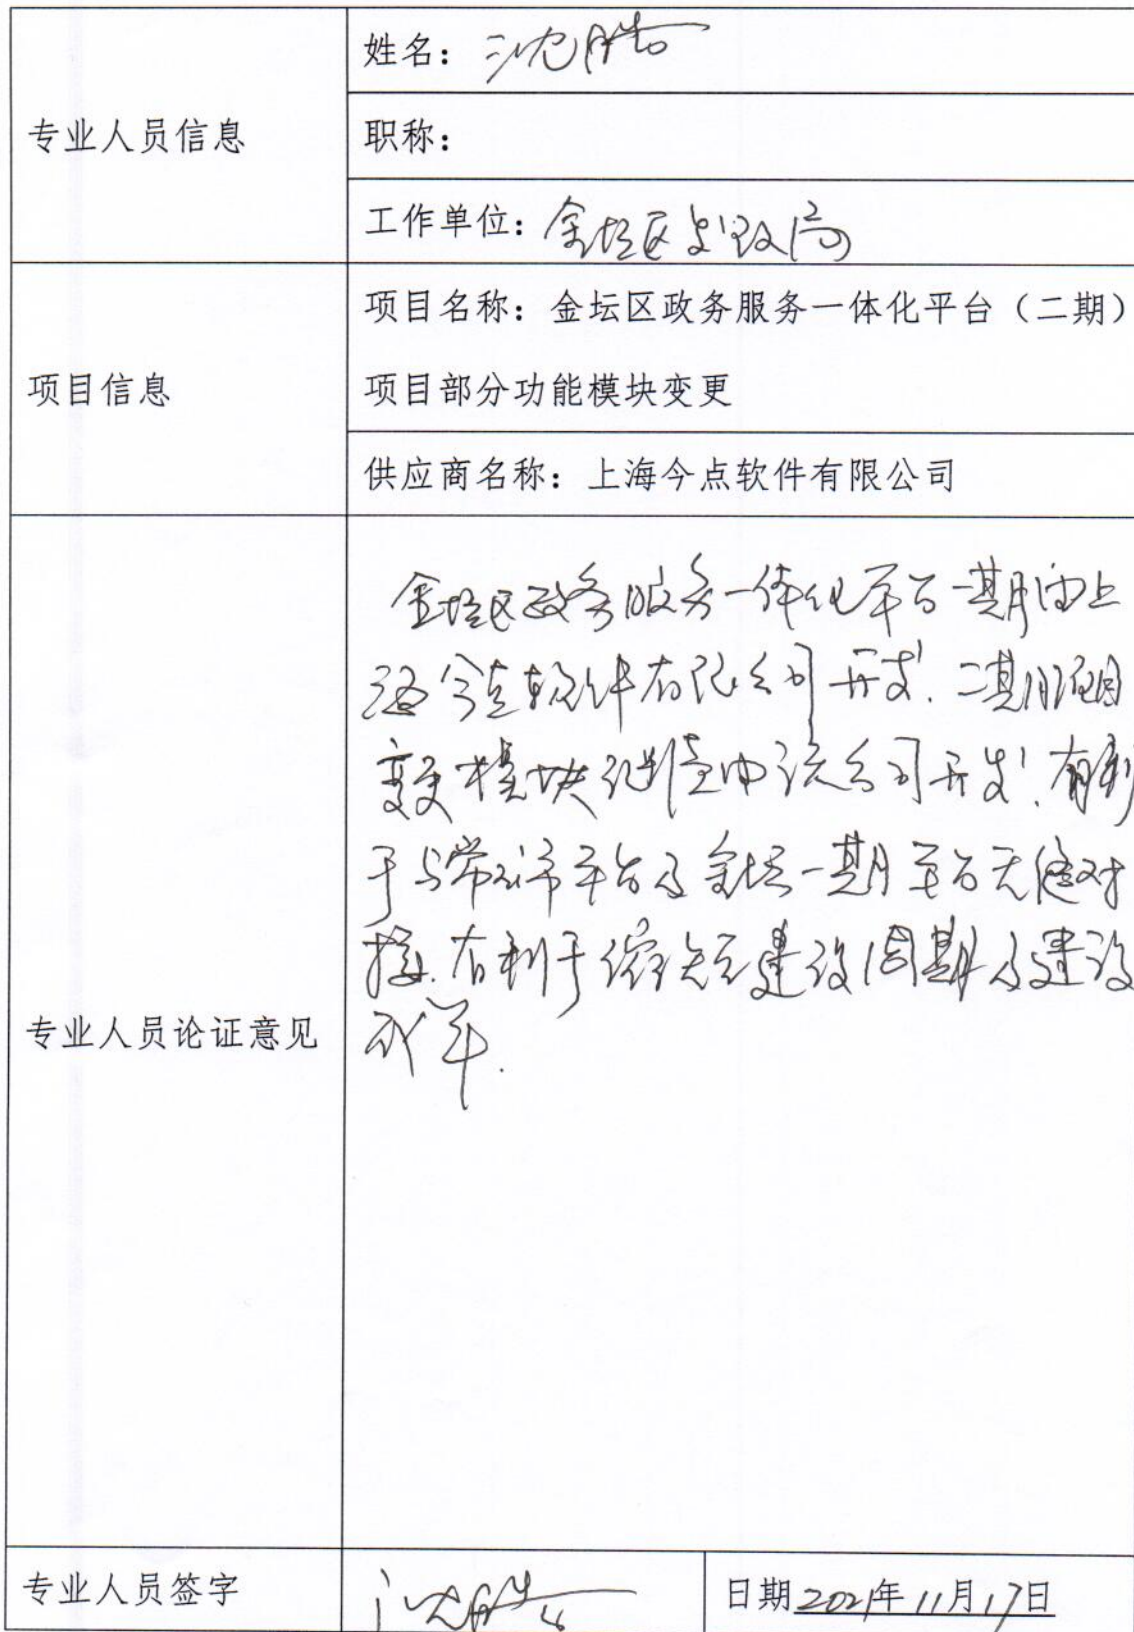 专业人员信息
姓名：沈
职称：
工作单位：金坛区财政局
项目信息
项目名称：金坛区政务服务一体化平台（二期）
项目部分功能模块变更
供应商名称：上海今点软件有限公司
专业人员论证意见
金坛区政务服务一体化平台一期由上
海今点软件有限公司开发.二期项目
变更模块继续由该公司开发.有利
于与常州市平台及金坛一期平台无缝对
接.有利于缩短建设周期及建设
成本.
专业人员签字
沈
日期2021年11月17日